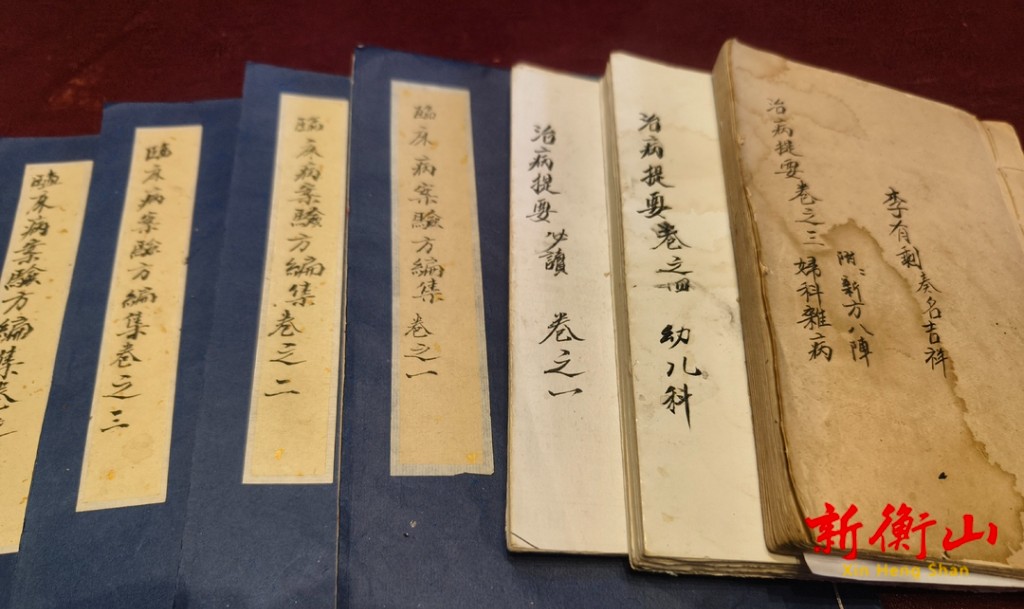 臨床病案驗方編集卷之
臨床病案驗方編集卷之三
臨床病案驗方編集卷之二
臨床病案驗方編集卷之一
治病提要必讀 卷之一
治病提要卷之四 幼儿科
治病提要卷之三 婦科雜病
附新方八陣
李有剩奏名吉祥
新衡山
Xin Heng Shan